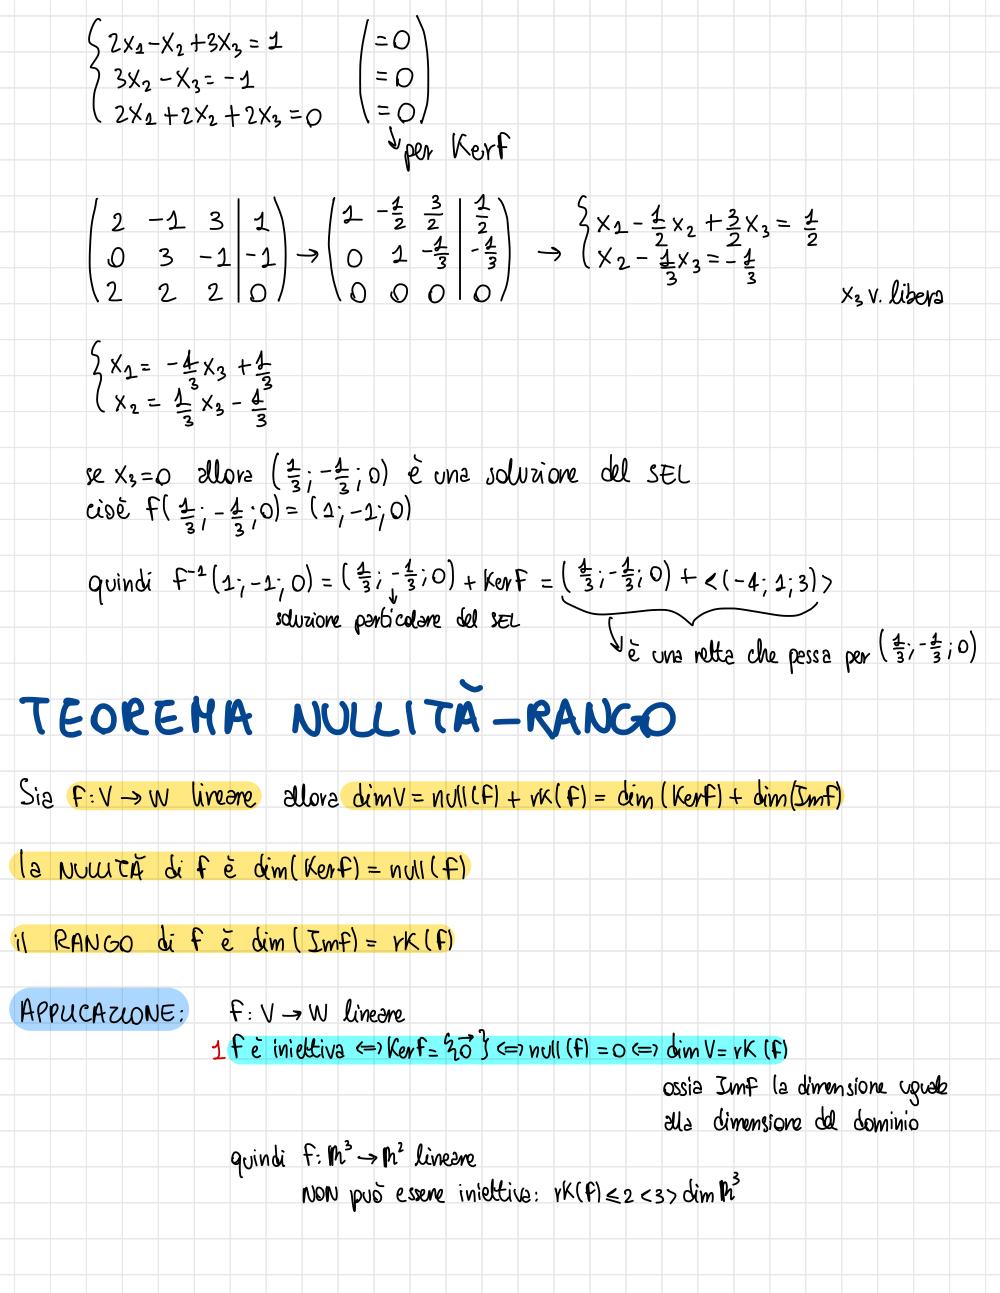 { 2x₁ - x₂ + 3x₃ = 1   ( = 0 )
{ 3x₂ - x₃ = -1   ( = 0 )
{ 2x₁ + 2x₂ + 2x₃ = 0   ( = 0 )
↓ per Kerf
( 2 -1 3 | 1 ) → ( 1 -1/2 3/2 | 1/2 ) → { x₁ - 1/2 x₂ + 3/2 x₃ = 1/2
( 0 3 -1 | -1 )   ( 0 1 -1/3 | -1/3 )   { x₂ - 1/3 x₃ = -1/3
( 2 2 2 | 0 )   ( 0 0 0 | 0 )   x₃ v. libera
{ x₁ = -4/3 x₃ + 1/3
{ x₂ = 1/3 x₃ - 1/3
se x₃=0 allora (1/3; -1/3; 0) è una soluzione del SEL
cioè f(1/3; -1/3; 0) = (1; -1; 0)
quindi f⁻¹(1; -1; 0) = (1/3; -1/3; 0) + Kerf = (1/3; -1/3; 0) + <(-4; 1; 3)>
↓ soluzione particolare del SEL
↓ è una retta che passa per (1/3; -1/3; 0)
TEOREMA NULLITÀ-RANGO
Sia f: V → W lineare allora dim V = null(f) + rk(f) = dim(Kerf) + dim(Imf)
la NULLITÀ di f è dim(Kerf) = null(f)
il RANGO di f è dim(Imf) = rk(f)
APPLICAZIONE: f: V → W lineare
1 f è iniettiva ⇔ Kerf = {0⃗} ⇔ null(f) = 0 ⇔ dim V = rk(f)
ossia Imf la dimensione uguale
alla dimensione del dominio
quindi f: ℝ³ → ℝ² lineare
NON può essere iniettiva: rk(f) ≤ 2 < 3 > dim ℝ³